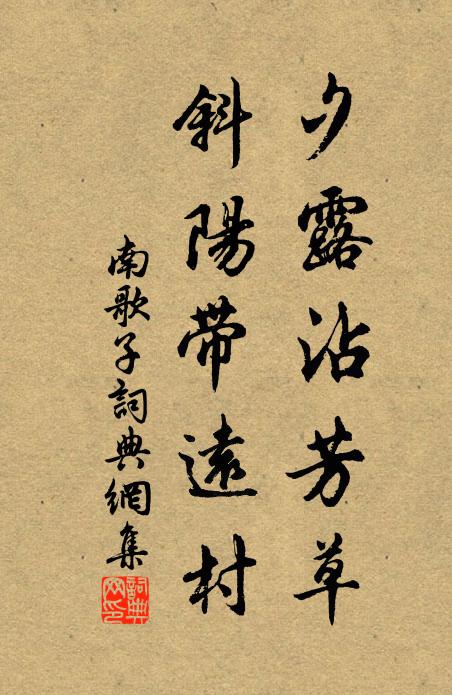 夕露沾芳草
斜陽帶遠村
南歌子詞典網集
詞典網印